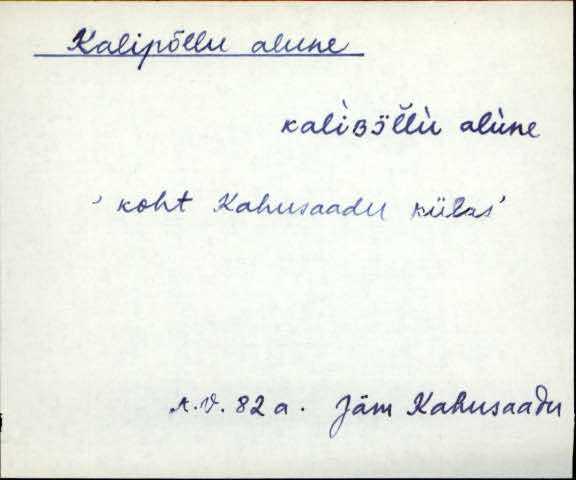 Kalipõllu alune
kaliʙö̆llù alùne
' koht Kahusaadu külas'
A.V. 82 a. Jäm Kahusaadu